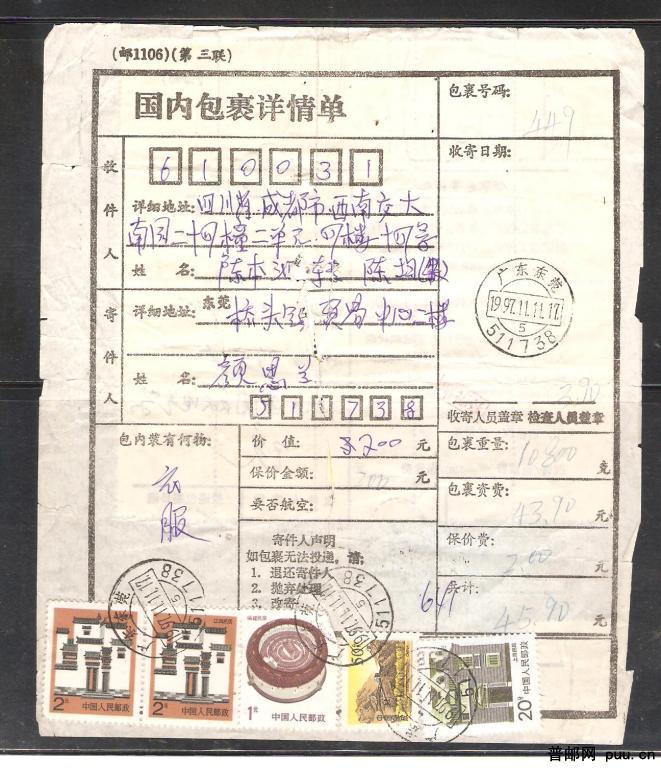 (邮1106)(第三联)
国内包裹详情单
包裹号码:
449
收寄日期:
收件人
610031
详细地址: 四川省成都市西南交大
南园二十四幢二单元四楼十四号
姓名: 陈
寄件人
详细地址: 东莞 桥头
二楼
姓名: 颜
511738
广东东莞
1997.11.11.17
5
511738
3.90
收寄人员盖章 检查人员盖章
包内装有何物:
衣服
价值: 200 元
保价金额: 200 元
要否航空:
寄件人声明
如包裹无法投递,请:
1. 退还寄件人
2. 抛弃处理
3. 改寄
包裹重量: 10800 克
包裹资费: 43.90 元
保价费: 2.00 元
共计: 45.90 元
641
江西民居
2元
中国人民邮政
2元
中国人民邮政
福建民居
1元
中国人民邮政
上海民居
20分
中国人民邮政
普邮网 puu.cn